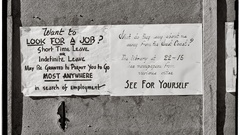 Want to
LOOK FOR A JOB?
Short Time Leave
or
Indefinite Leave
May Be Granted to Permit You to Go
MOST ANYWHERE
in search of employment
Want to buy
away from the West Coast?
The library at 22-16
has newspapers from
various cities
SEE FOR YOURSELF